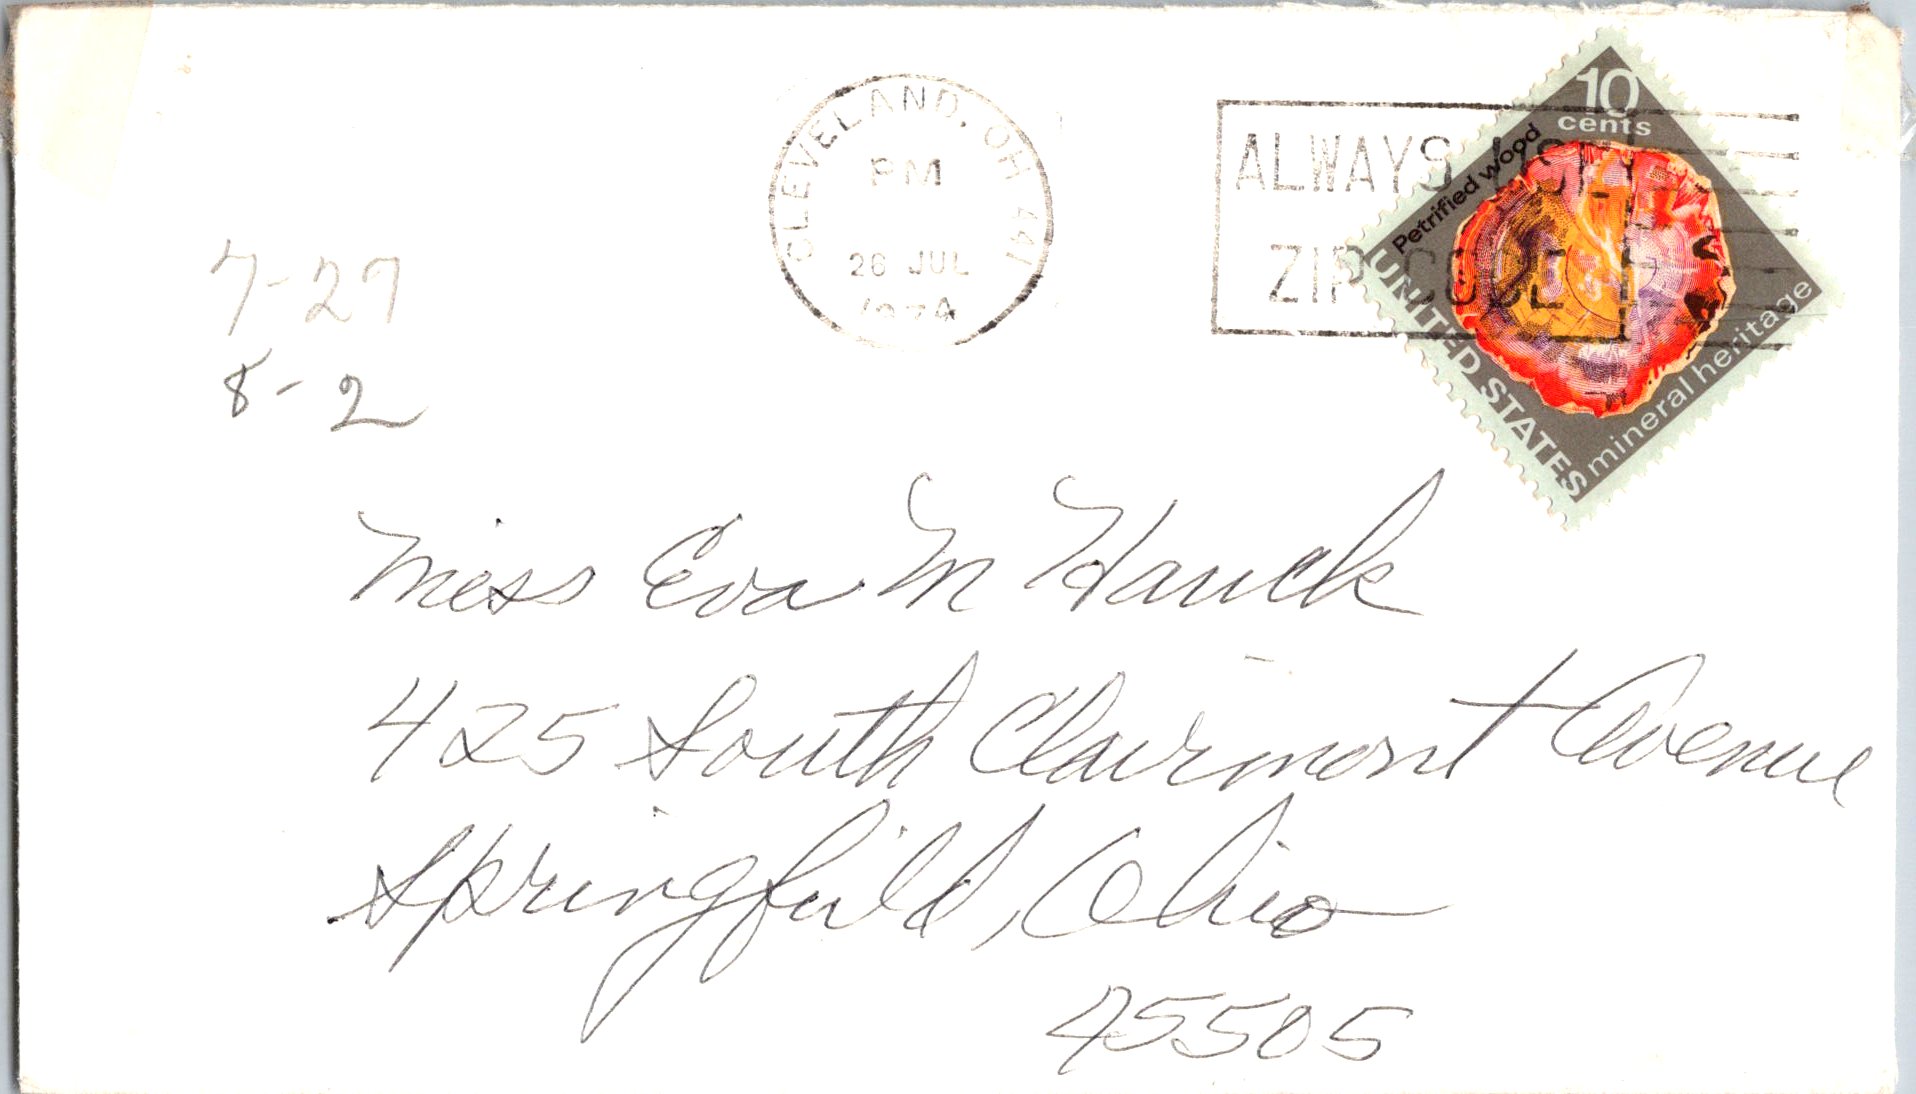 CLEVELAND, OH 441
PM
26 JUL
1974
ALWAYS USE
ZIP CODE
10
cents
Petrified wood
UNITED STATES
mineral heritage
7-27
8-2
Miss Eva M Hauck
425 South Clairmont Avenue
Springfield, Ohio
45505